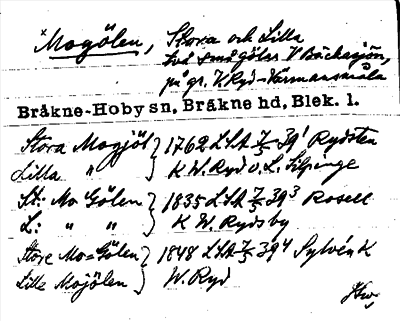 Mogölen, Stora och Lilla
två små gölar V Bäckasjön,
på gr. V. Ryd - Värmansmåla
Bråkne-Hoby sn, Bråkne hd, Blek. l.
Stora Mogjöl } 1762 LSA 7/5 39¹ Rydsten
Lilla " } K W. Ryd o. L. Silpinge
St: Mo Gölen } 1835 LSA 7/5 39³ Rosell
L: " " } K W. Rydsby
Store Mo=Gölen } 1848 LSA 7/5 39⁴ Sylvén K
Lille Mojölen } W. Ryd